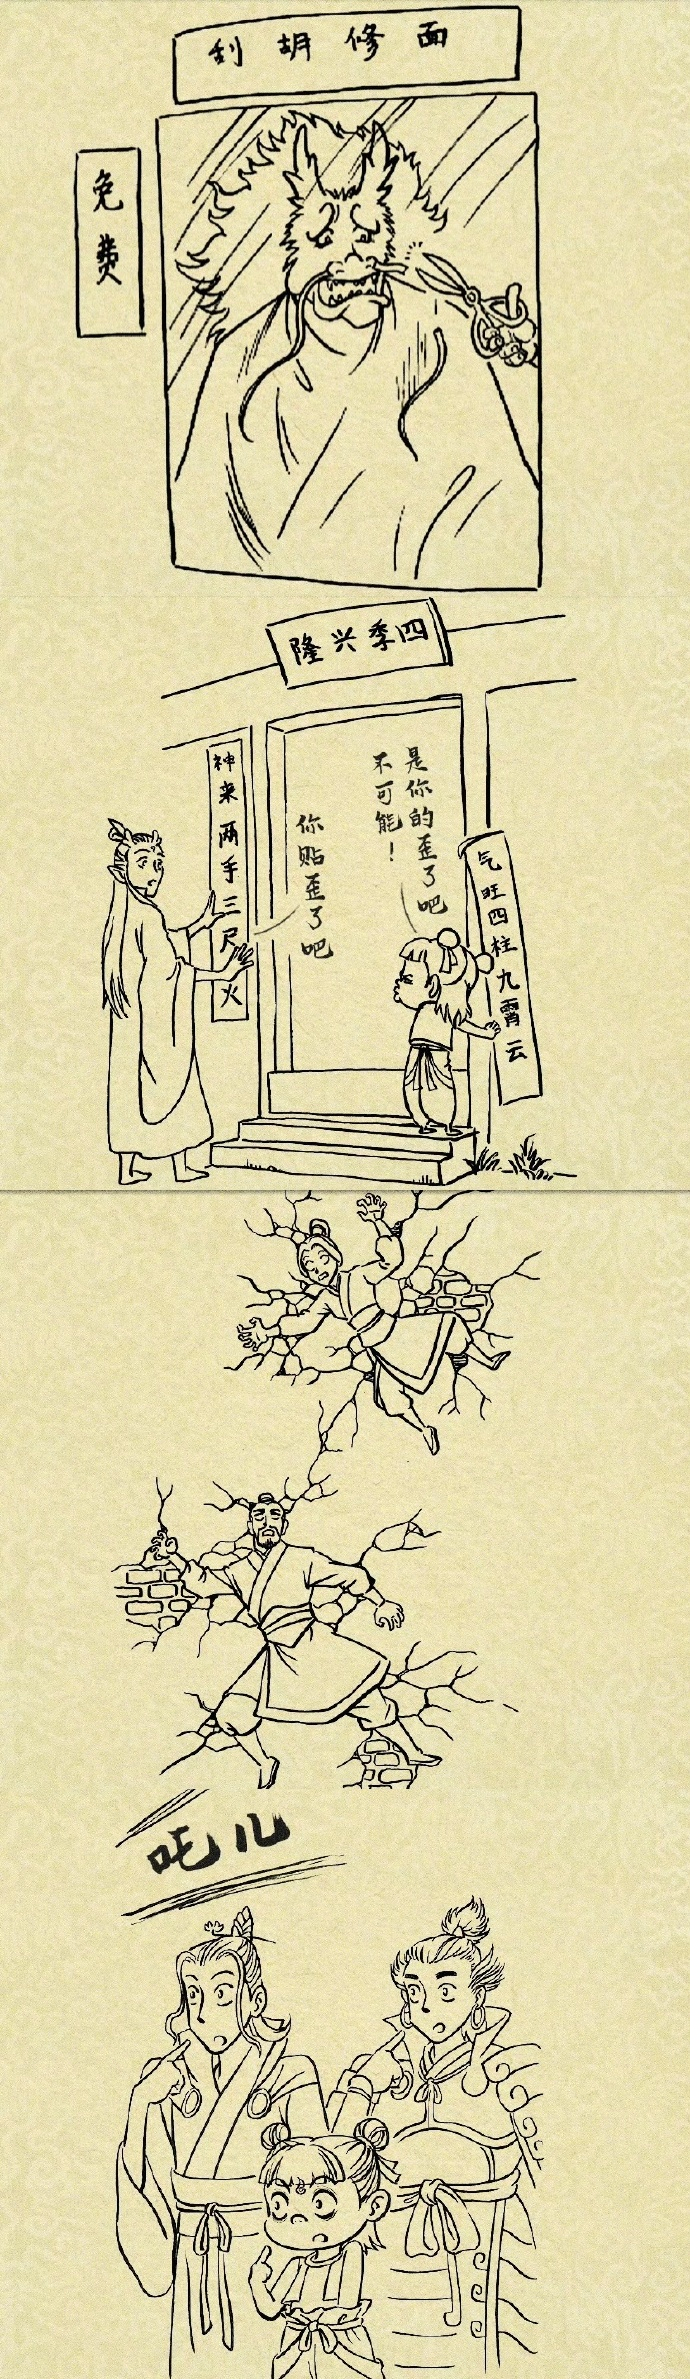 刮胡修面
免费
隆兴季四
神来两手三尺火
你贴歪了吧
是你的歪了吧
不可能！
气旺四柱九霄云
吒儿